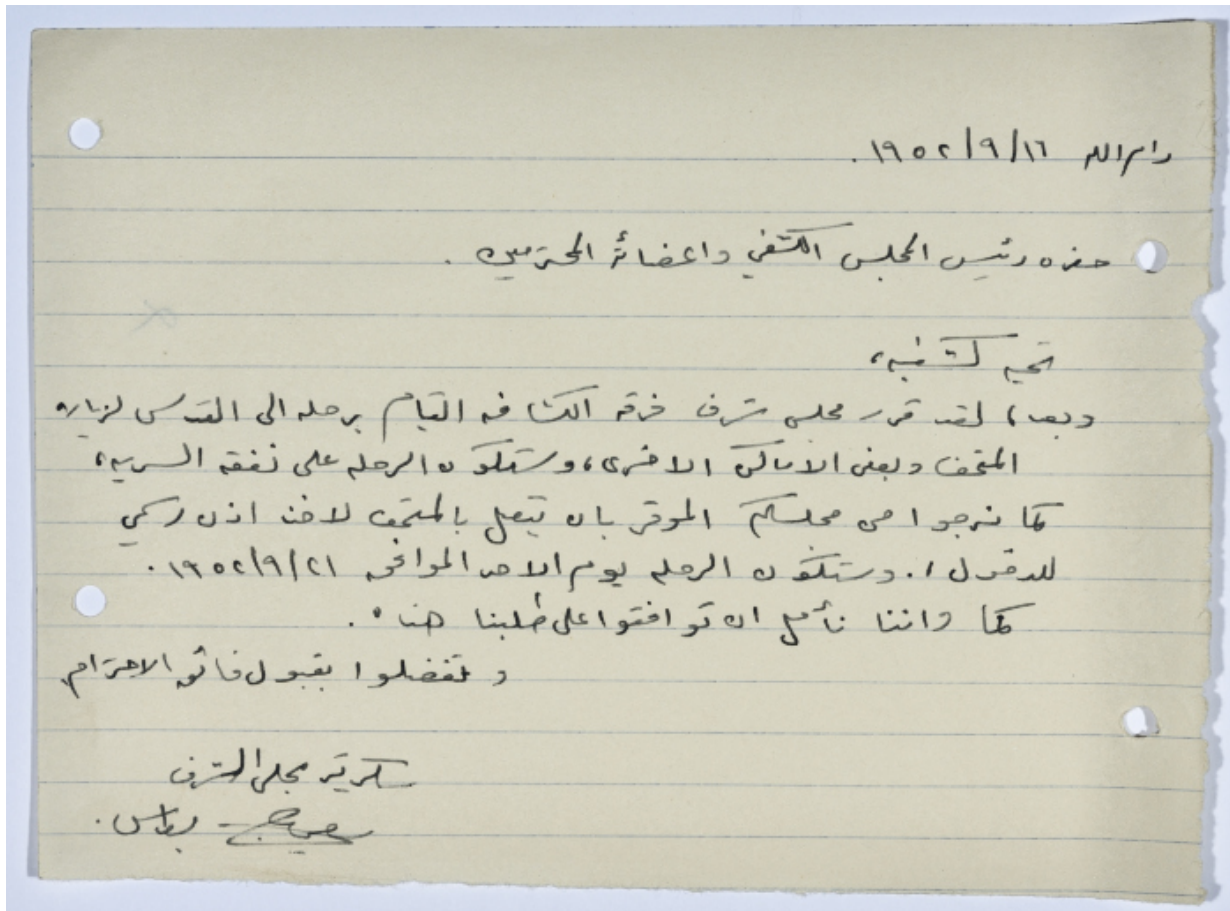 رام الله ١٦/٩/١٩٥٢.
حضره رئيس المجلس الكشفي واعضائه المحترمين.
تحيه كشفيه،
وبعد، لقد قرر مجلس شرف فرقه الكشافه القيام برحله الى القدس لزياره
المتحف وبعض الاماكن الاخرى، وستكون الرحله على نفقه السريه،
كما نرجوا من مجلسكم الموقر بان تتصل بالمتحف لاخذ اذن رسمي
للدخول. وستكون الرحله يوم الاحد الموافق ٢١/٩/١٩٥٢.
كما واننا نأمل ان توافقوا على طلبنا هذا.
وتفضلوا بقبول فائق الاحترام
سكرتير مجلس الشرف
بطرس.